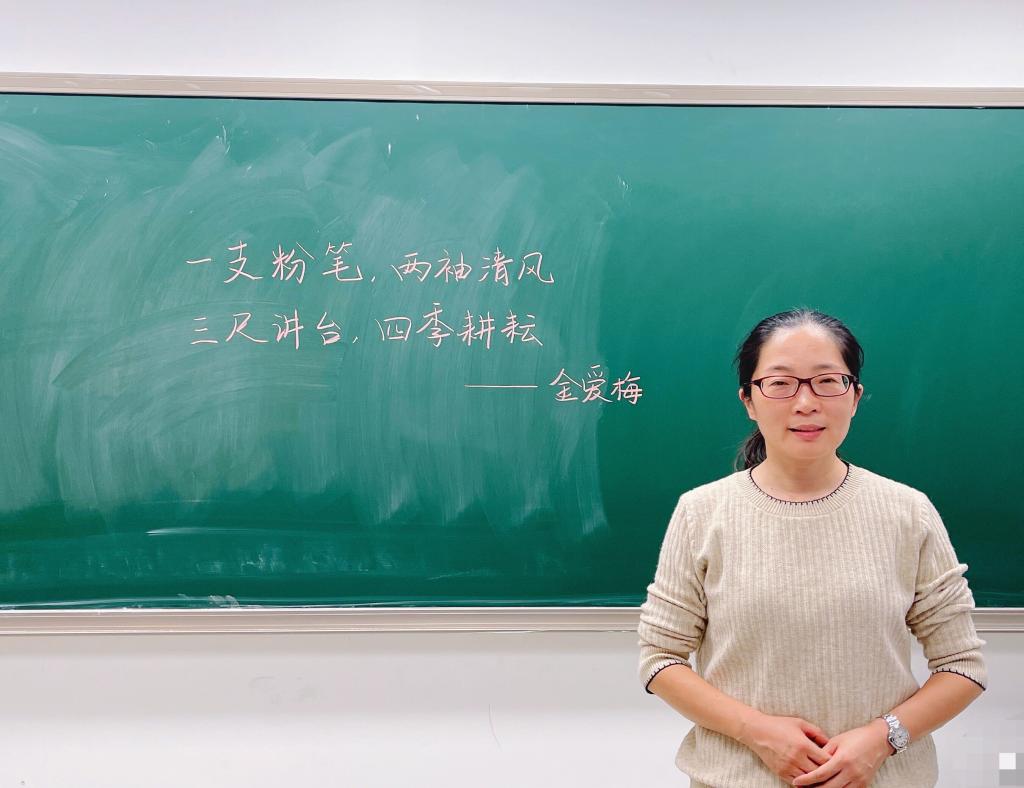 一支粉笔,两袖清风
三尺讲台,四季耕耘
——金爱梅